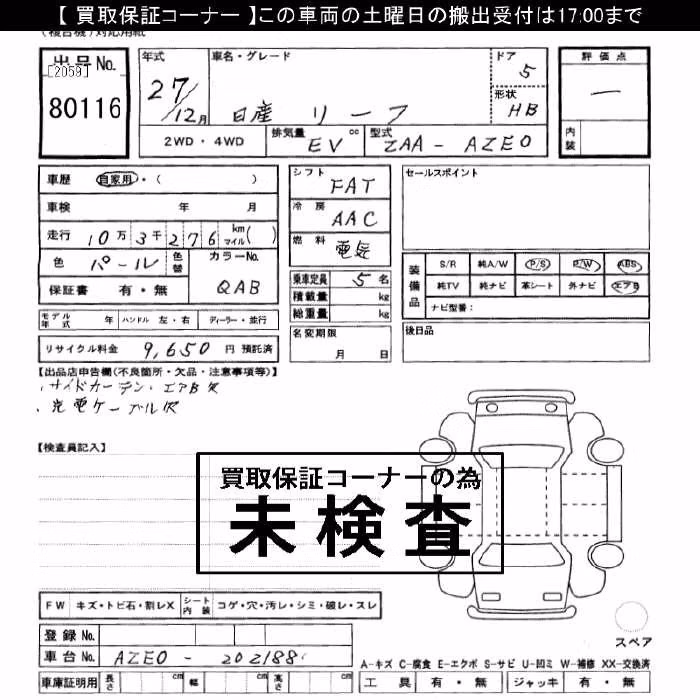 【 買取保証コーナー 】この車両の土曜日の搬出受付は17:00まで
出品No.
[2059]
80116
年式
27/12月
車名・グレード
日産 リーフ
ドア
5
形状
HB
評価点
ー
内装
2WD・4WD
排気量
EV
cc
型式
ZAA - AZE0
車歴
自家用・( )
車検 年 月
走行 10万 3千 276 km マイル( )
色 パール 色替
カラーNo.
QAB
保証書 有・無
シフト
FAT
冷房
AAC
燃料
電気
乗車定員 5 名
積載量 kg
総重量 kg
セールスポイント
装備品
S/R 純A/W P/S P/W ABS
純TV 純ナビ 革シート 外ナビ エアB
ナビ型番:
モデル年式 年 ハンドル 左・右 ディーラー・並行
名変期限
月 日
後日品
リサイクル料金 9,650 円 預託済
【出品店申告欄(不良箇所・欠品・注意事項等)】
・サイドカーテン・エアB欠
・充電ケーブル欠
【検査員記入】
買取保証コーナーの為
未検査
FW キズ・トビ石・割レX シート内装 コゲ・穴・汚レ・シミ・破レ・スレ
登録 No.
車台 No. AZE0 - 202188
スペア
A-キズ C-腐食 E-エクボ S-サビ U-凹ミ W-補修 XX-交換済
車庫証明用 長さ cm 幅 cm 高さ cm
工具 有・無 ジャッキ 有・無